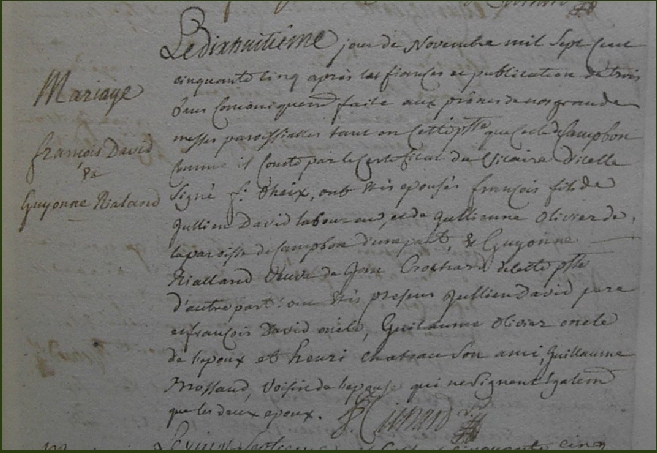 Le dixhuitieme jour de Novembre mil sept cent
cinquante cinq après les fiancés et publication de trois
bans faite aux prônes de nos grande
messes paroissialles tant en cette psse que celle de Campbon
comme il conste par le certificat du vicaire d'icelle
signé f. Theix, ont étés épousés françois fils de
Jullien David laboureur, et de Jullienne Olivier de
la paroisse de Campbon d'une part, & Guyonne
Rialland veuve de Jean de cette psse
d'autre part: ont étés presens Jullien David pere
et françois David oncle, Guillaume Olivier oncle
de l'epoux et henri chateau son ami, Guillaume
Brossaud, voisin de l'epouse qui ne signent egalemt
que les deux epoux.
Mariage
françois David
&
Guyonne Rialand
cinquante cinq